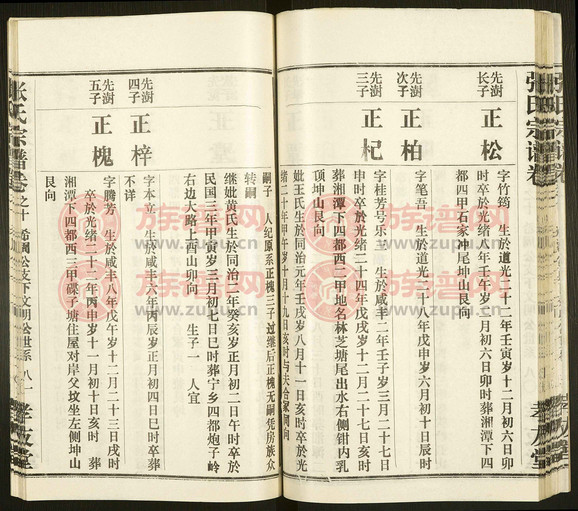 张氏宗谱卷
先澍
长子
正松
字竹筠 生於道光二十二年壬寅岁十二月初六日卯
时卒於光绪八年壬午岁 月初六日卯时葬湘潭下四
都四甲石家冲尾坤山艮向
先澍
次子
正柏
字笔吾 生於道光二十八年戊申岁六月初十日辰时
先澍
三子
正杞
字桂芳号乐三 生於咸丰二年壬子岁三月二十七日
申时卒於光绪二十四年戊戌岁十二月二十七日亥时
葬湘潭下四都西二甲地名林芝塘尾出水右侧钳内乳
顶坤山艮向
妣王氏生於同治元年壬戌岁八月十一日亥时卒於光
绪二十年甲午岁十月十九日亥时与夫合冢同向
嗣子 人纪原系正槐三子过继后正槐无嗣凭房族众
转嗣
继妣黄氏生於同治二年癸亥岁正月初二日午时卒於
民国三年甲寅岁三月初七日巳时葬宁乡四都炮子岭
右边大路上酉山卯向 生子一 人宜
先澍
四子
正梓
字本立 生於咸丰六年丙辰岁正月初四日巳时卒葬
不详
先澍
五子
正槐
字腾芳 生於咸丰八年戊午岁十二月二十三日戌时
卒於光绪二十二年丙申岁十一月初十日亥时 葬
湘潭下四都西三甲碟子塘住屋对岸父坟坐左侧坤山
艮向
张氏宗谱卷之十
希闻公支下文明公世系
八一
孝友堂
族谱网
www.zupu.cn